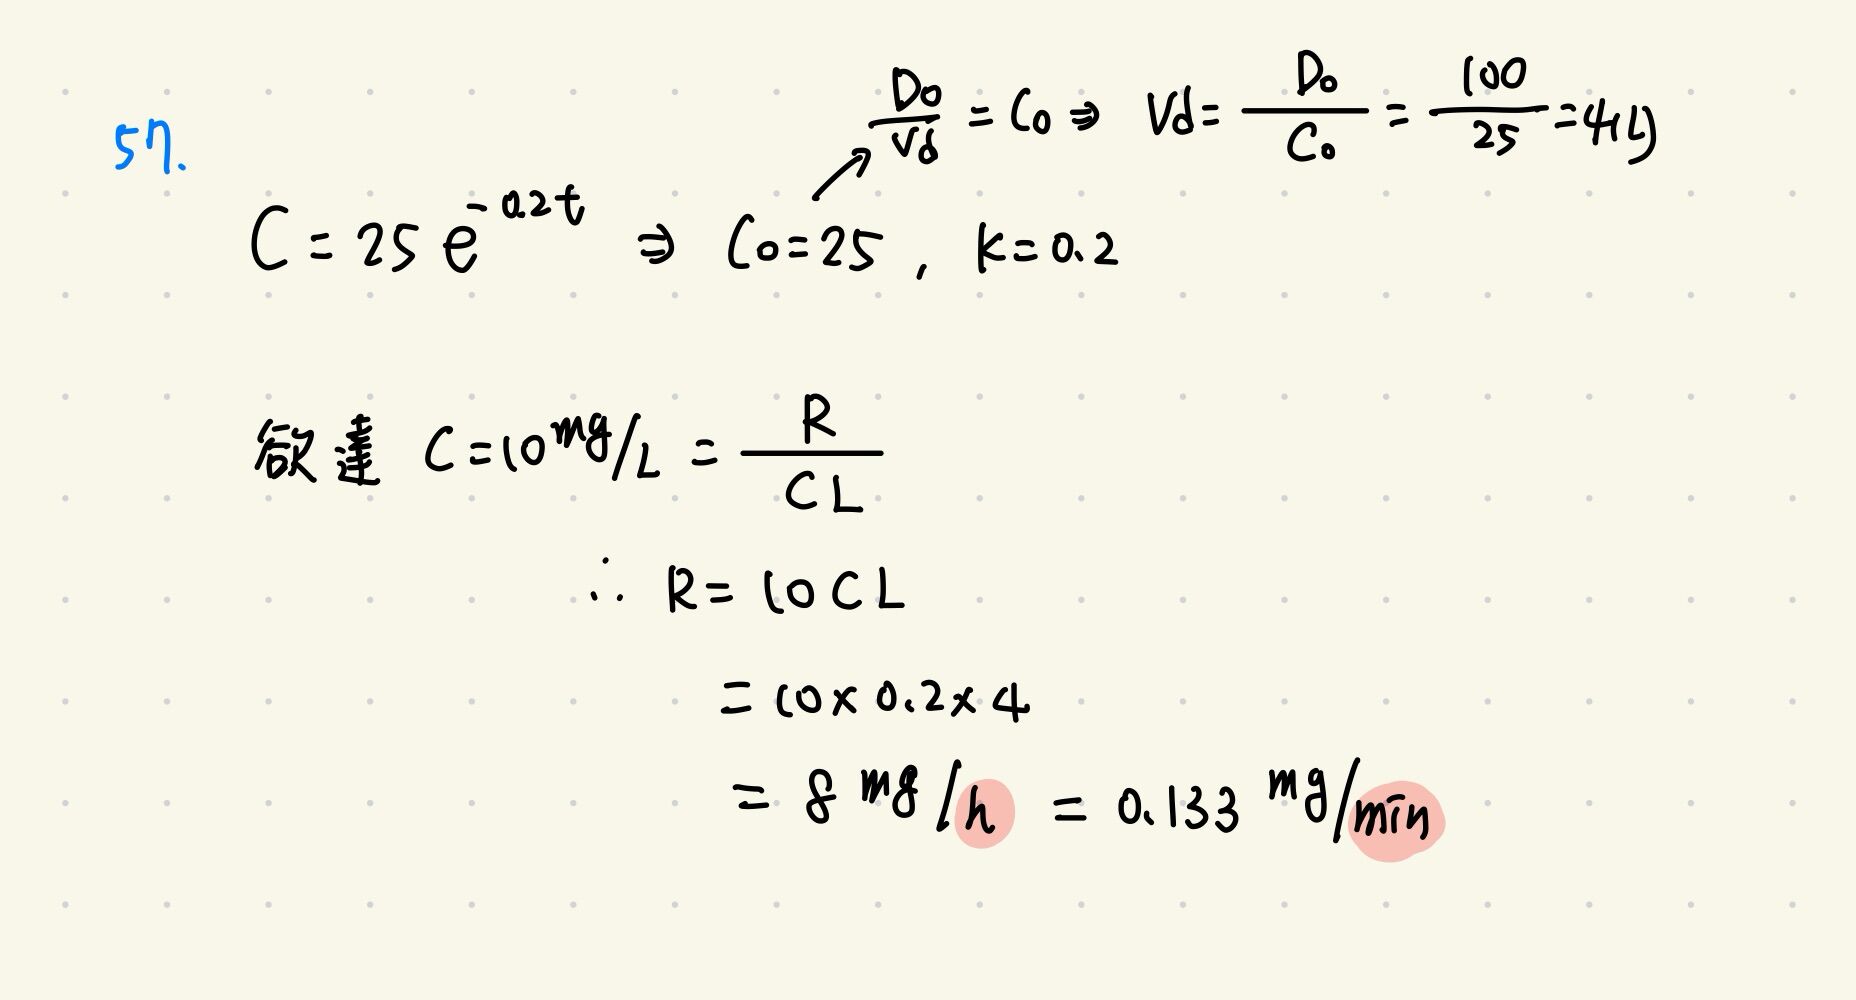 57.
D₀/Vd = C₀ ⇒ Vd = D₀/C₀ = 100/25 = 4(L)
C = 25 e^{-0.2t} ⇒ C₀ = 25 , K = 0.2
欲達 C = 10 mg/L = R/CL
∴ R = 10 CL
= 10 × 0.2 × 4
= 8 mg/h = 0.133 mg/min